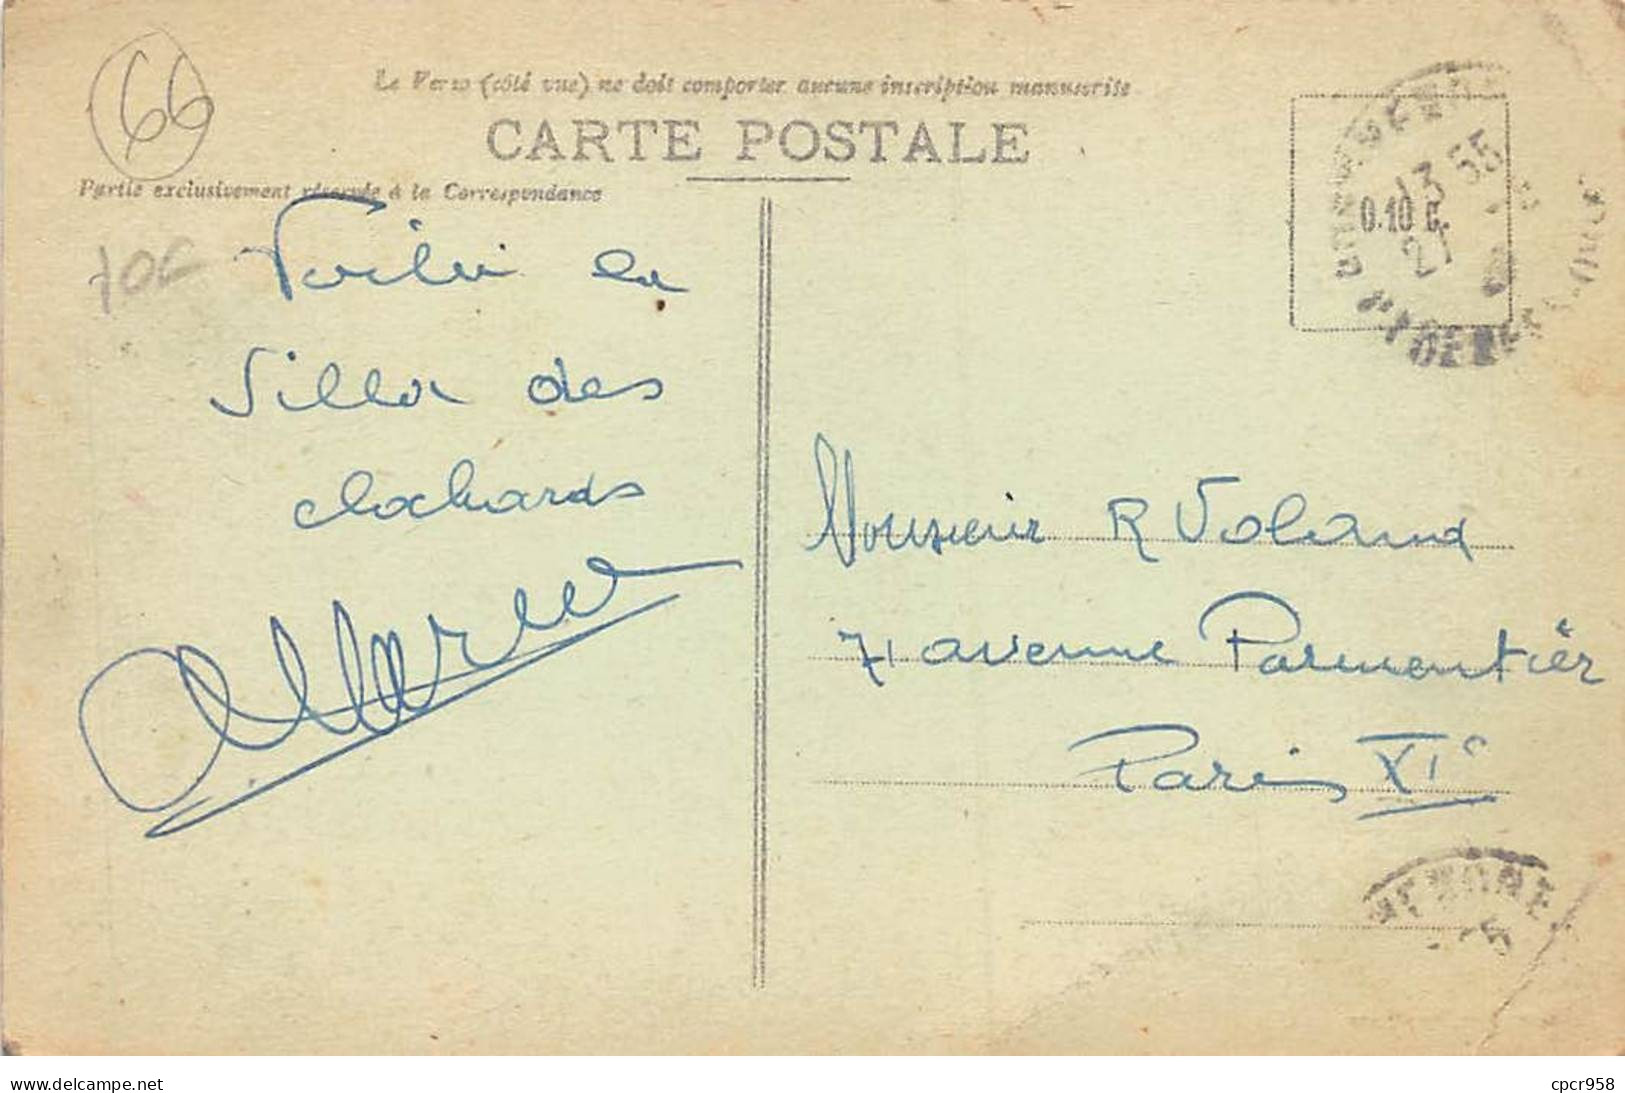 66
Le Verso (côté vue) ne doit comporter aucune inscription manuscrite
CARTE POSTALE
Partie exclusivement réservée à la Correspondance
10€
13 55
0.10 C.
21
Voilà la
Villa des
clochards
Monsieur R Voland
71 avenue Parmentier
Paris XIe
delcampe.net
cpcr958